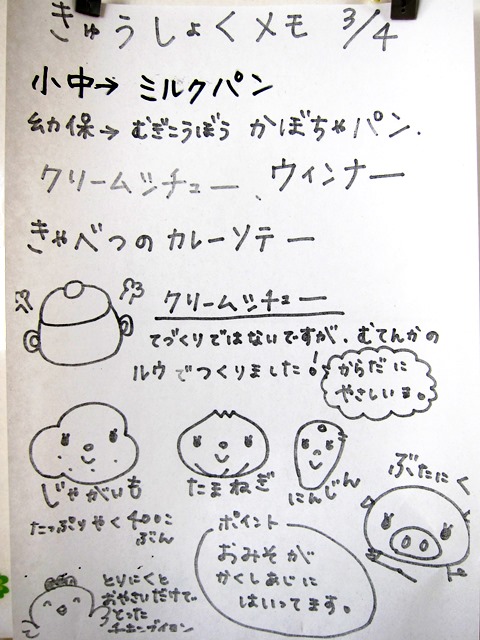 きゅうしょくメモ 3/4
小中→ ミルクパン
幼保→ むぎこうぼう かぼちゃパン.
クリームシチュー、ウィンナー
きゃべつのカレーソテー
クリームシチュー
てづくりではないですが、むてんかの
ルウでつくりました!
からだに
やさしいよ。
じゃがいも
たまねぎ
にんじん
ぶたにく
たっぷりやく400こ
ぶん
ポイント
おみそが
かくしあじに
はいってます。
とりにくと
おやさいだけで
とった
チキンブイヨン